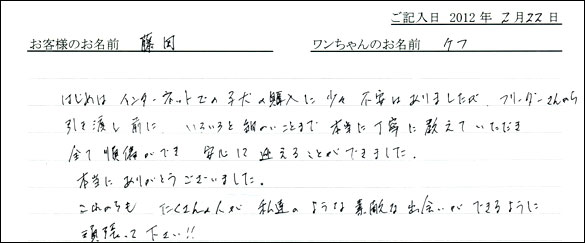 ご記入日 2012 年 2月22日
お客様のお名前 藤田 ワンちゃんのお名前 ケフ
はじめは インターネットでの子犬の購入に 少々 不安はありましたが、ブリーダーさんから
引き渡し前に、いろいろと 細かいことまで 本当に丁寧に 教えていただき
全て 準備ができ 安心して 迎えることができました。
本当に ありがとうございました。
これからも たくさんの人が 私達の ような 素敵な 出会いが できるように
頑張って 下さい!!